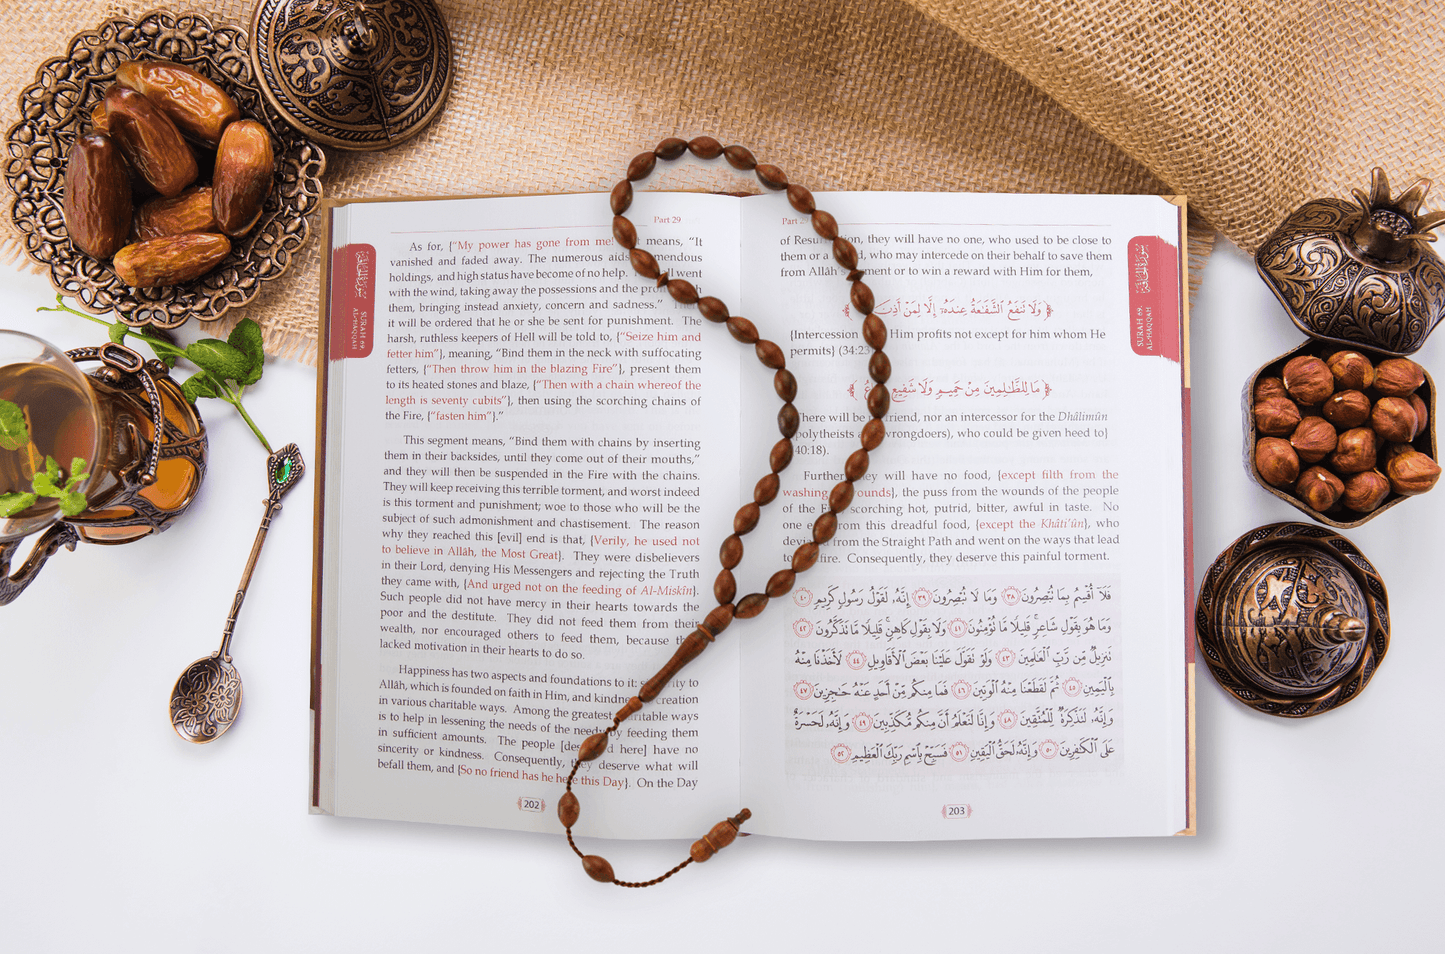 Part 29
As for, {"My power has gone from me! means, "It
vanished and faded away. The numerous aids, tremendous
holdings, and high status have become of no help. went
with the wind, taking away the possessions and the
them, bringing instead anxiety, concern and sadness."
it will be ordered that he or she be sent for punishment. The
harsh, ruthless keepers of Hell will be told to, {"Seize him and
fetter him"}, meaning, "Bind them in the neck with suffocating
fetters, {"Then throw him in the blazing Fire"}, present them
to its heated stones and blaze, {"Then with a chain whereof the
length is seventy cubits"}, then using the scorching chains of
the Fire, {"fasten him"}."
This segment means, "Bind them with chains by inserting
them in their backsides, until they come out of their mouths,"
and they will then be suspended in the Fire with the chains.
They will keep receiving this terrible torment, and worst indeed
is this torment and punishment; woe to those who will be the
subject of such admonishment and chastisement. The reason
why they reached this [evil] end is that, {Verily, he used not
to believe in Allâh, the Most Great}. They were disbelievers
in their Lord, denying His Messengers and rejecting the Truth
they came with, {And urged not on the feeding of Al-Miskîn}.
Such people did not have mercy in their hearts towards the
poor and the destitute. They did not feed them from their
wealth, nor encouraged others to feed them, because
lacked motivation in their hearts to do so.
Happiness has two aspects and foundations to it: to
Allâh, which is founded on faith in Him, and kindness creation
in various charitable ways. Among the greatest charitable ways
is to help in lessening the needs of the needy by feeding them
in sufficient amounts. The people here] have no
sincerity or kindness. Consequently, they deserve what will
befall them, and {So no friend has he here this Day}. On the Day
202
سورة الحاقة
SURAH 69.
AL-HAQQAH
Part 29
of Resurrection, they will have no one, who used to be close to
them or a who may intercede on their behalf to save them
from Allâh's or to win a reward with Him for them,
﴿ وَلَا تَنفَعُ الشَّفَاعَةُ عِندَهُ إِلَّا لِمَنْ أَذِنَ
{Intercession Him profits not except for him whom He
permits} (34:23)
﴿ مَا لِلظَّالِمِينَ مِنْ حَمِيمٍ وَلَا شَفِيعٍ ﴾
There will be friend, nor an intercessor for the Dhâlimûn
(polytheists wrongdoers), who could be given heed to}
(40:18).
Further, they will have no food, {except filth from the
washing wounds}, the puss from the wounds of the people
of the scorching hot, putrid, bitter, awful in taste. No
one from this dreadful food, {except the Khâti'ûn}, who
deviated from the Straight Path and went on the ways that lead
to Fire. Consequently, they deserve this painful torment.
فَلَا أُقْسِمُ بِمَا تُبْصِرُونَ ٣٨ وَمَا لَا تُبْصِرُونَ ٣٩ إِنَّهُ لَقَوْلُ رَسُولٍ كَرِيمٍ ٤٠
وَمَا هُوَ بِقَوْلِ شَاعِرٍ قَلِيلًا مَّا تُؤْمِنُونَ ٤١ وَلَا بِقَوْلِ كَاهِنٍ قَلِيلًا مَّا تَذَكَّرُونَ ٤٢
تَنزِيلٌ مِّن رَّبِّ الْعَالَمِينَ ٤٣ وَلَوْ تَقَوَّلَ عَلَيْنَا بَعْضَ الْأَقَاوِيلِ ٤٤ لَأَخَذْنَا مِنْهُ
بِالْيَمِينِ ٤٥ ثُمَّ لَقَطَعْنَا مِنْهُ الْوَتِينَ ٤٦ فَمَا مِنكُم مِّنْ أَحَدٍ عَنْهُ حَاجِزِينَ ٤٧
وَإِنَّهُ لَتَذْكِرَةٌ لِّلْمُتَّقِينَ ٤٨ وَإِنَّا لَنَعْلَمُ أَنَّ مِنكُم مُّكَذِّبِينَ ٤٩ وَإِنَّهُ لَحَسْرَةٌ
عَلَى الْكَافِرِينَ ٥٠ وَإِنَّهُ لَحَقُّ الْيَقِينِ ٥١ فَسَبِّحْ بِاسْمِ رَبِّكَ الْعَظِيمِ ٥٢
203
سورة الحاقة
SURAH 69.
AL-HAQQAH